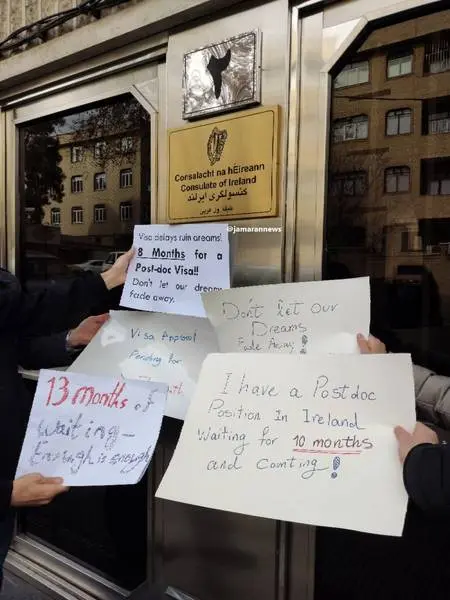 Consalacht na hÉireann
Consulate of Ireland
کنسولگری ایرلند
طبقه غربی
@jamarannews
Visa delays ruin dreams!
8 Months for a
Post-doc Visa!!
Don't let our dream
fade away.
Don't let Our
Dreams
Fade Away!
Visa Approval
Pending for
13 months of
waiting-
Enough is enough
I have a Postdoc
Position In Ireland
Waiting for 10 months
and counting!